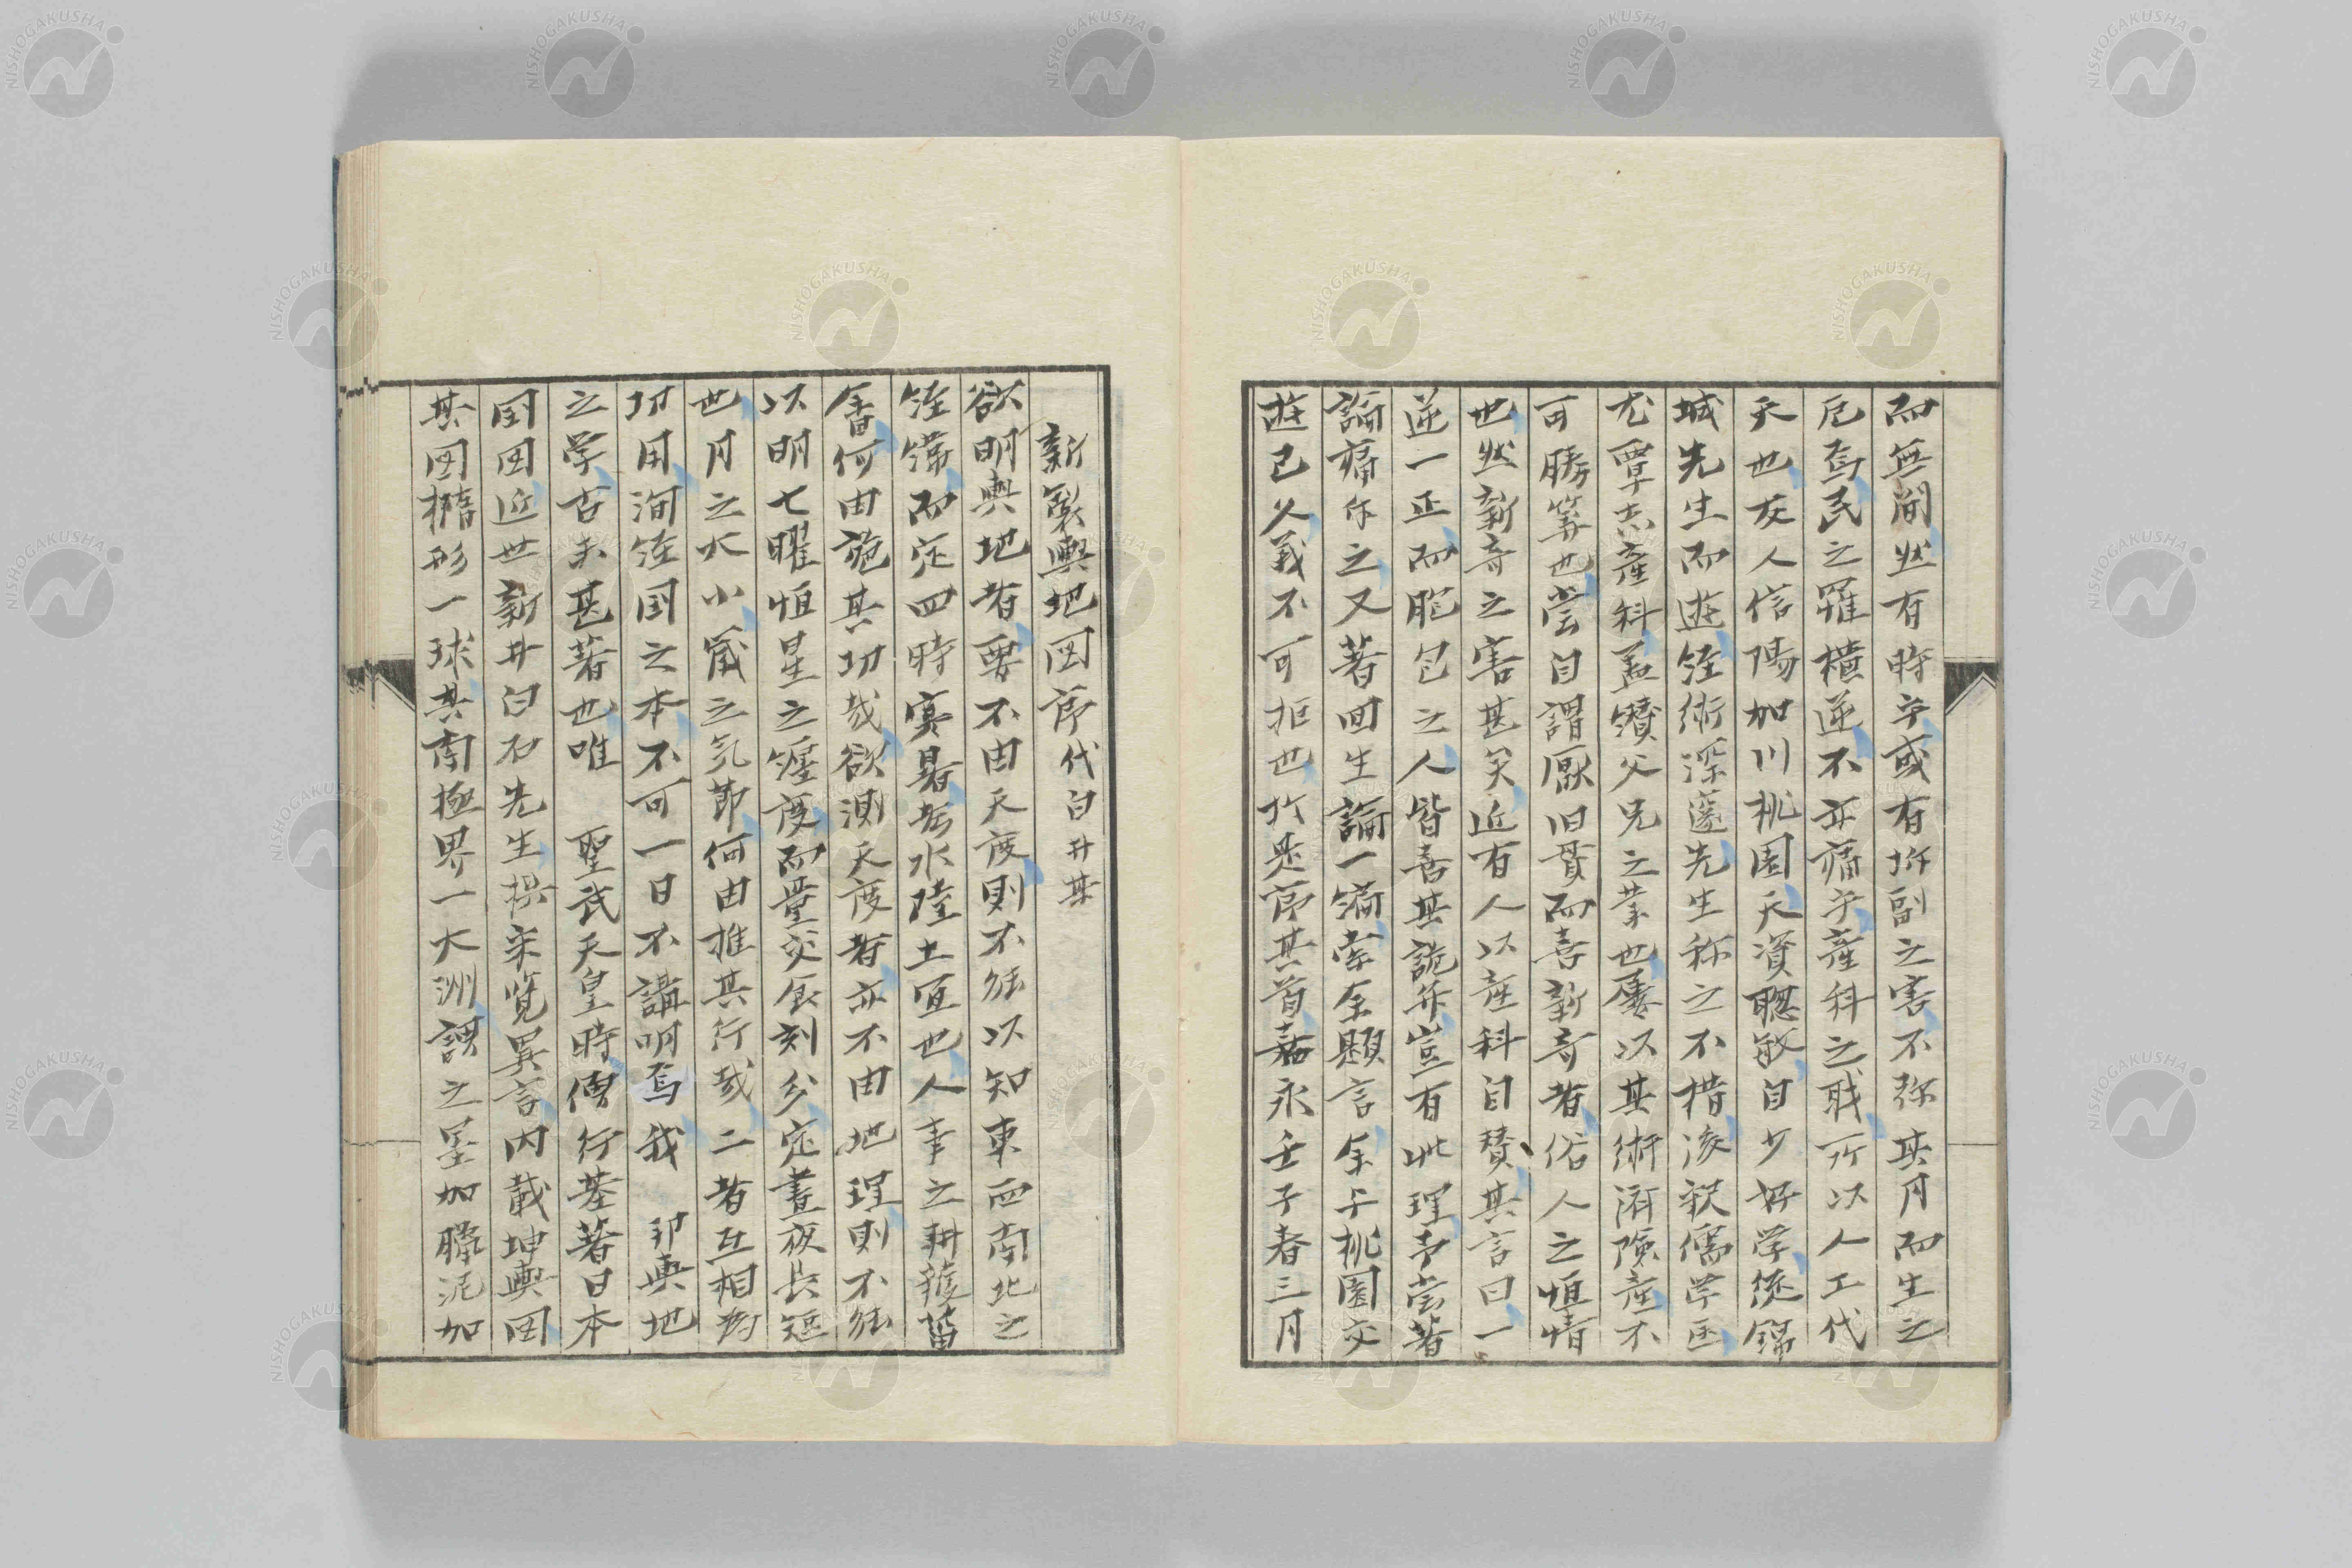 而無間然有時乎或有坼副之害不弥其月而生之
厄焉民之罹横逆不亦痛乎産科之職所以人工代
天也友人信陽加川桃園天資聰敏自少好学従錦
城先生而遊経術深邃先生称之不措後釈儒学医
尤覃志産科盖纉父兄之業也屡以其術済険産不
可勝筭也嘗自謂厭旧貫而喜新奇者俗人之恒情
也然新奇之害甚矣近有人以産科自賛其言曰一
逆一正而胞包之人皆喜其詭弁豈有此理乎嘗著
論痛弁之又著回生論一編索余題言余与桃園交
遊已久義不可拒也於是序其首嘉永壬子春三月
新製輿地図序代白井某
欲明輿地者要不由天度則不能以知東西南北之
経緯而定四時寒暑若水陸土宜也人事之耕穫菑
畬何由施其功哉欲測天度者亦不由地理則不能
以明七曜恒星之躔度而量交食刻分定晝夜長短
也月之大小歳之気節何由推其行哉二者互相為
功用洵経国之本不可一日不講明焉我　邦輿地
之学古未甚著也唯　聖武天皇時僧行基著日本
国図近世新井白石先生撰采覧異言内載坤輿図
其図楕形一球其南極界一大洲謂之墨加臘泥加